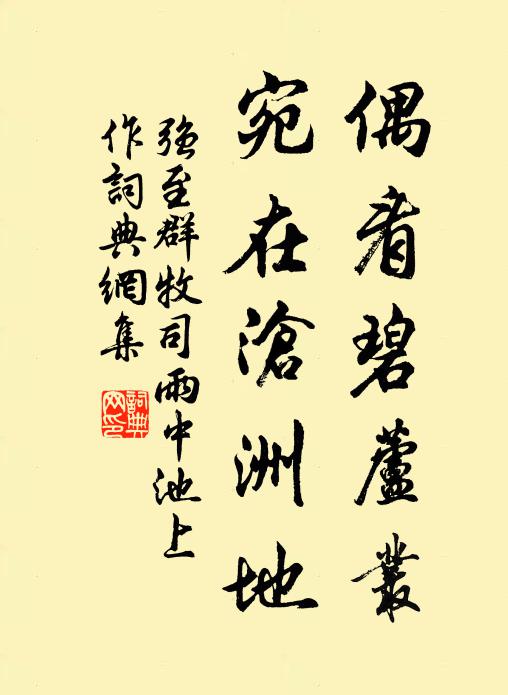 偶看碧蘆叢
宛在滄洲地
強至群牧司雨中池上
作詞典網集
詞典網印